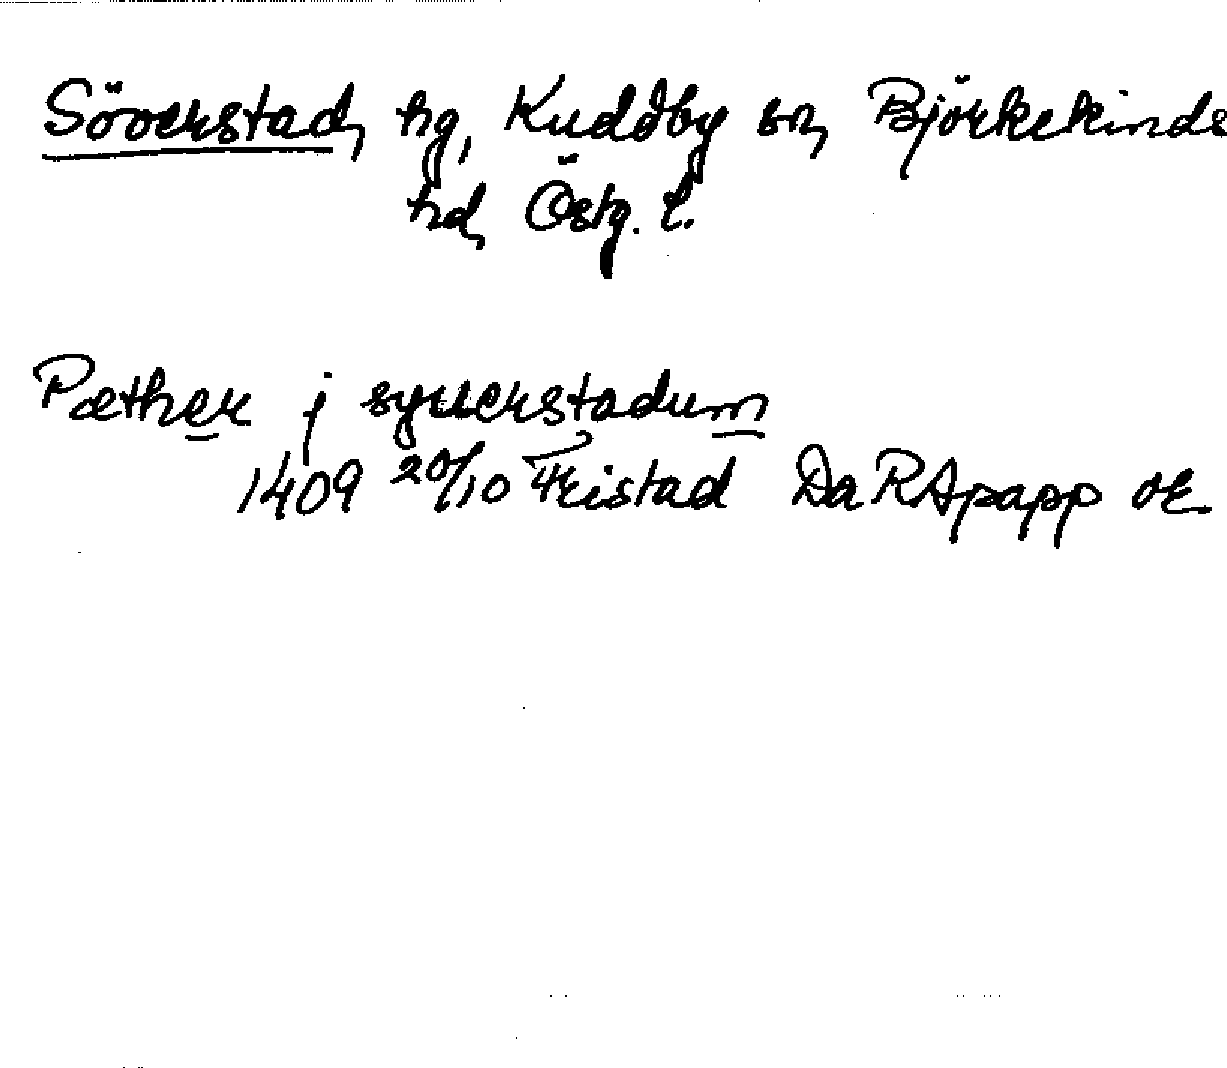 Söverstad, hg, Kuddby sn, Björkekinds
hd, Östg. l.
Pæther j syuerstadum
1409 20/10 Fristad Da RApapp or.